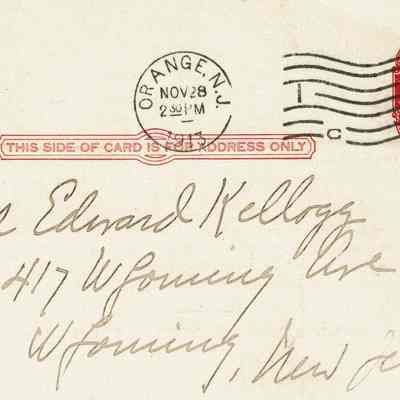 ORANGE, N.J.
NOV 28
2 30 PM
1913
1
C
THIS SIDE OF CARD IS FOR ADDRESS ONLY
Edward Kellogg
417 Wyoming Ave
Wyoming, New Je